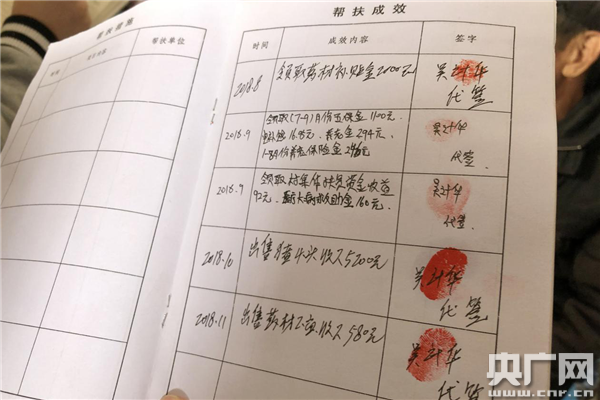 帮扶措施
时间
帮扶单位
帮扶成效
时间
成效内容
签字
2018.8
领取药材补贴金2000元
吴叶华
代签
2018.9
领取(7-9)月份五保金1100元、
1-8月份养老保险金
吴叶华
代签
2018.9
领取村集体扶贫资金收益
92元、 救助金160元.
吴叶华
代签
2018.10
出售猪 头收入5200元
吴叶华
代签
2018.11
出售药材 收入580元
吴叶华
代签
央广网
www.cnr.cn